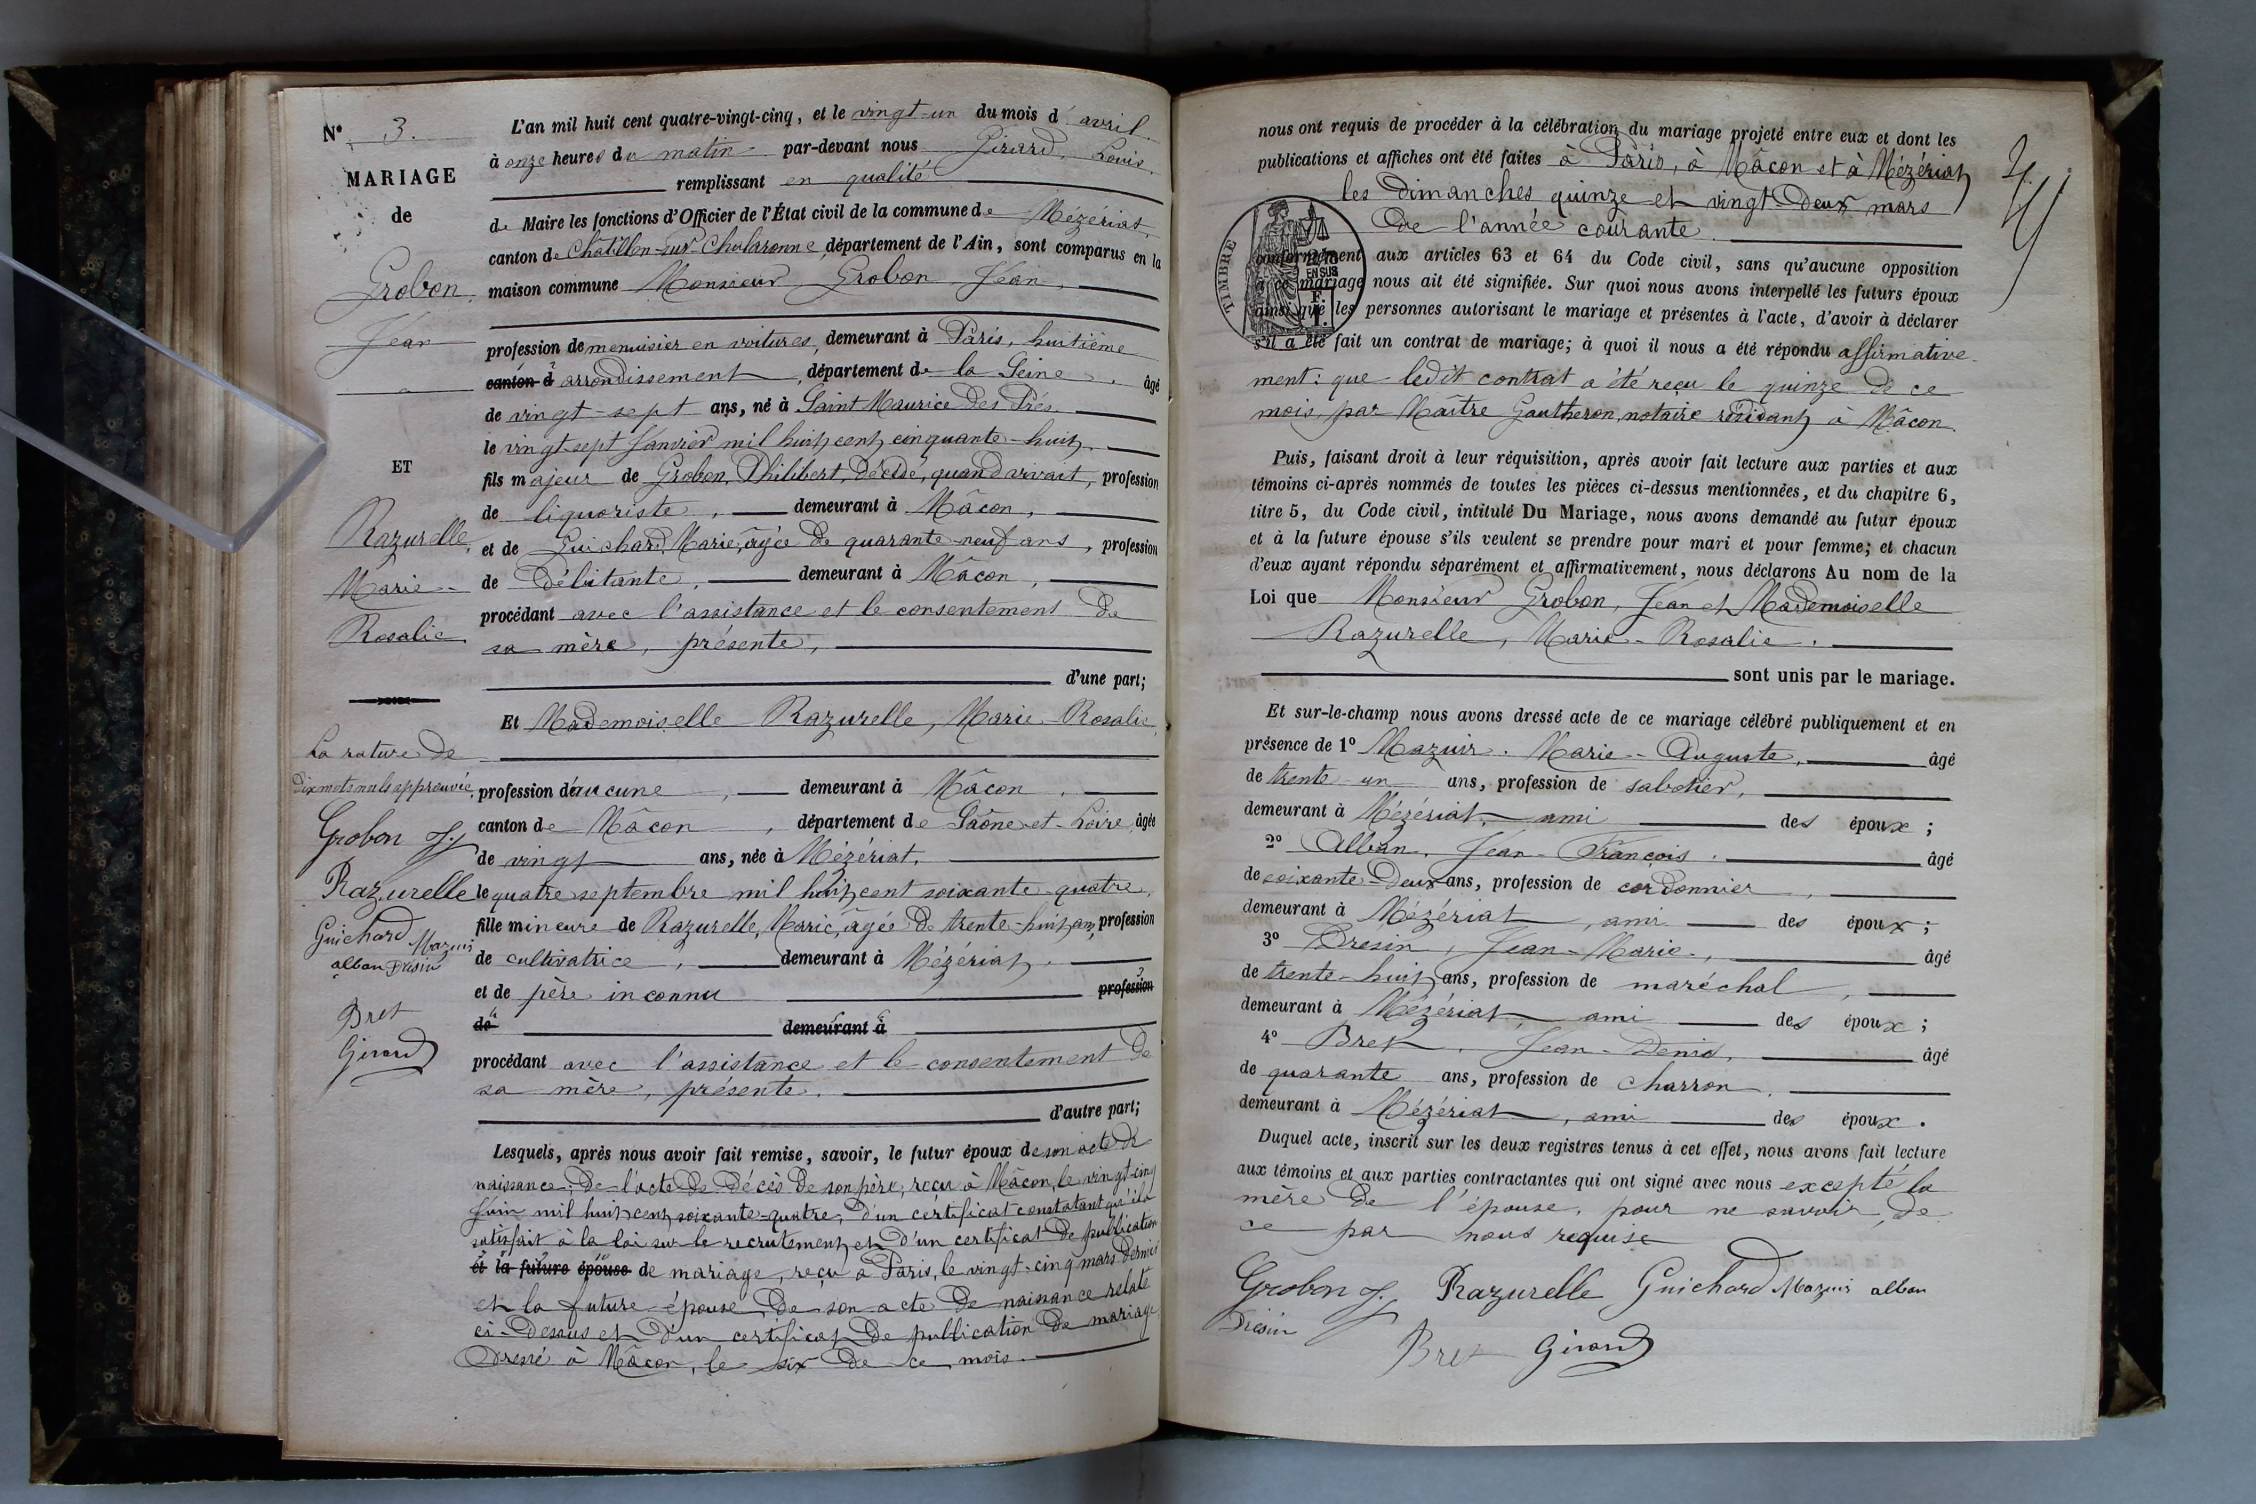 N° 3.
MARIAGE
de
Grobon,
Jean
ET
Razurelle,
Marie-
Rosalie
La rature de
dix mots nuls approuvée.
Grobon J.
Razurelle
Guichard Mazuir
alban Drésin
Bret
Girard
L'an mil huit cent quatre-vingt-cinq, et le vingt-un du mois d'avril
à onze heures du matin par-devant nous Girard, Louis,
remplissant en qualité
de Maire les fonctions d'Officier de l'État civil de la commune de Mézériat,
canton de Châtillon-sur-Chalaronne, département de l'Ain, sont comparus en la
maison commune Monsieur Grobon Jean,
profession de menuisier en voitures, demeurant à Paris, huitième
canton d arrondissement, département de la Seine, âgé
de vingt-sept ans, né à Saint Maurice des Prés
le vingt-sept Janvier mil huit cent cinquante-huit,
fils majeur de Grobon, Philibert, décédé, quand vivait, profession
de liquoriste, demeurant à Mâcon,
et de Guichard, Marie, âgée de quarante-neuf ans, profession
de Débitante, demeurant à Mâcon,
procédant avec l'assistance et le consentement de
sa mère, présente,
d'une part;
Et Mademoiselle Razurelle, Marie-Rosalie,
profession d'aucune, demeurant à Mâcon,
canton de Mâcon, département de Saône-et-Loire, âgée
de vingt ans, née à Mézériat,
le quatre septembre mil huit cent soixante-quatre,
fille mineure de Razurelle, Marie, âgée de trente-huit ans, profession
de cultivatrice, demeurant à Mézériat,
et de père inconnu profession
de demeurant à
procédant avec l'assistance et le consentement de
sa mère, présente,
d'autre part;
Lesquels, après nous avoir fait remise, savoir, le futur époux de son acte de
naissance; de l'acte de décès de son père, reçu à Mâcon, le vingt-cinq
Juin mil huit cent soixante-quatre; d'un certificat constatant qu'il a
satisfait à la loi sur le recrutement et d'un certificat de publication
et la future épouse de mariage, reçu à Paris, le vingt-cinq mars dernier
et la future épouse, de son acte de naissance relaté
ci-dessus et d'un certificat de publication de mariage
dressé à Mâcon, le six de ce mois.
nous ont requis de procéder à la célébration du mariage projeté entre eux et dont les
publications et affiches ont été faites à Paris, à Mâcon et à Mézériat
les dimanches quinze et vingt-deux mars
de l'année courante.
TIMBRE
2/10
EN SUS
F.
conformément aux articles 63 et 64 du Code civil, sans qu'aucune opposition
à ce mariage nous ait été signifiée. Sur quoi nous avons interpellé les futurs époux
ainsi que les personnes autorisant le mariage et présentes à l'acte, d'avoir à déclarer
s'il a été fait un contrat de mariage; à quoi il nous a été répondu affirmative-
ment: que ledit contrat a été reçu le quinze de ce
mois, par Maître Gautheron, notaire résidant à Mâcon.
Puis, faisant droit à leur réquisition, après avoir fait lecture aux parties et aux
témoins ci-après nommés de toutes les pièces ci-dessus mentionnées, et du chapitre 6,
titre 5, du Code civil, intitulé Du Mariage, nous avons demandé au futur époux
et à la future épouse s'ils veulent se prendre pour mari et pour femme; et chacun
d'eux ayant répondu séparément et affirmativement, nous déclarons Au nom de la
Loi que Monsieur Grobon, Jean et Mademoiselle
Razurelle, Marie-Rosalie.
sont unis par le mariage.
Et sur-le-champ nous avons dressé acte de ce mariage célébré publiquement et en
présence de 1° Mazuir. Marie-Auguste, âgé
de trente-un ans, profession de sabotier,
demeurant à Mézériat, ami des époux;
2° Alban, Jean-François. âgé
de soixante-Deux ans, profession de cordonnier,
demeurant à Mézériat, ami des époux;
3° Drésin, Jean-Marie, âgé
de trente-huit ans, profession de maréchal,
demeurant à Mézériat, ami des époux;
4° Bret, Jean-Denis, âgé
de quarante ans, profession de charron,
demeurant à Mézériat, ami des époux.
Duquel acte, inscrit sur les deux registres tenus à cet effet, nous avons fait lecture
aux témoins et aux parties contractantes qui ont signé avec nous excepté la
mère de l'épouse, pour ne savoir, de
ce par nous requise
Grobon J. Razurelle Guichard Mazuir alban
Drésin
Bret Girard